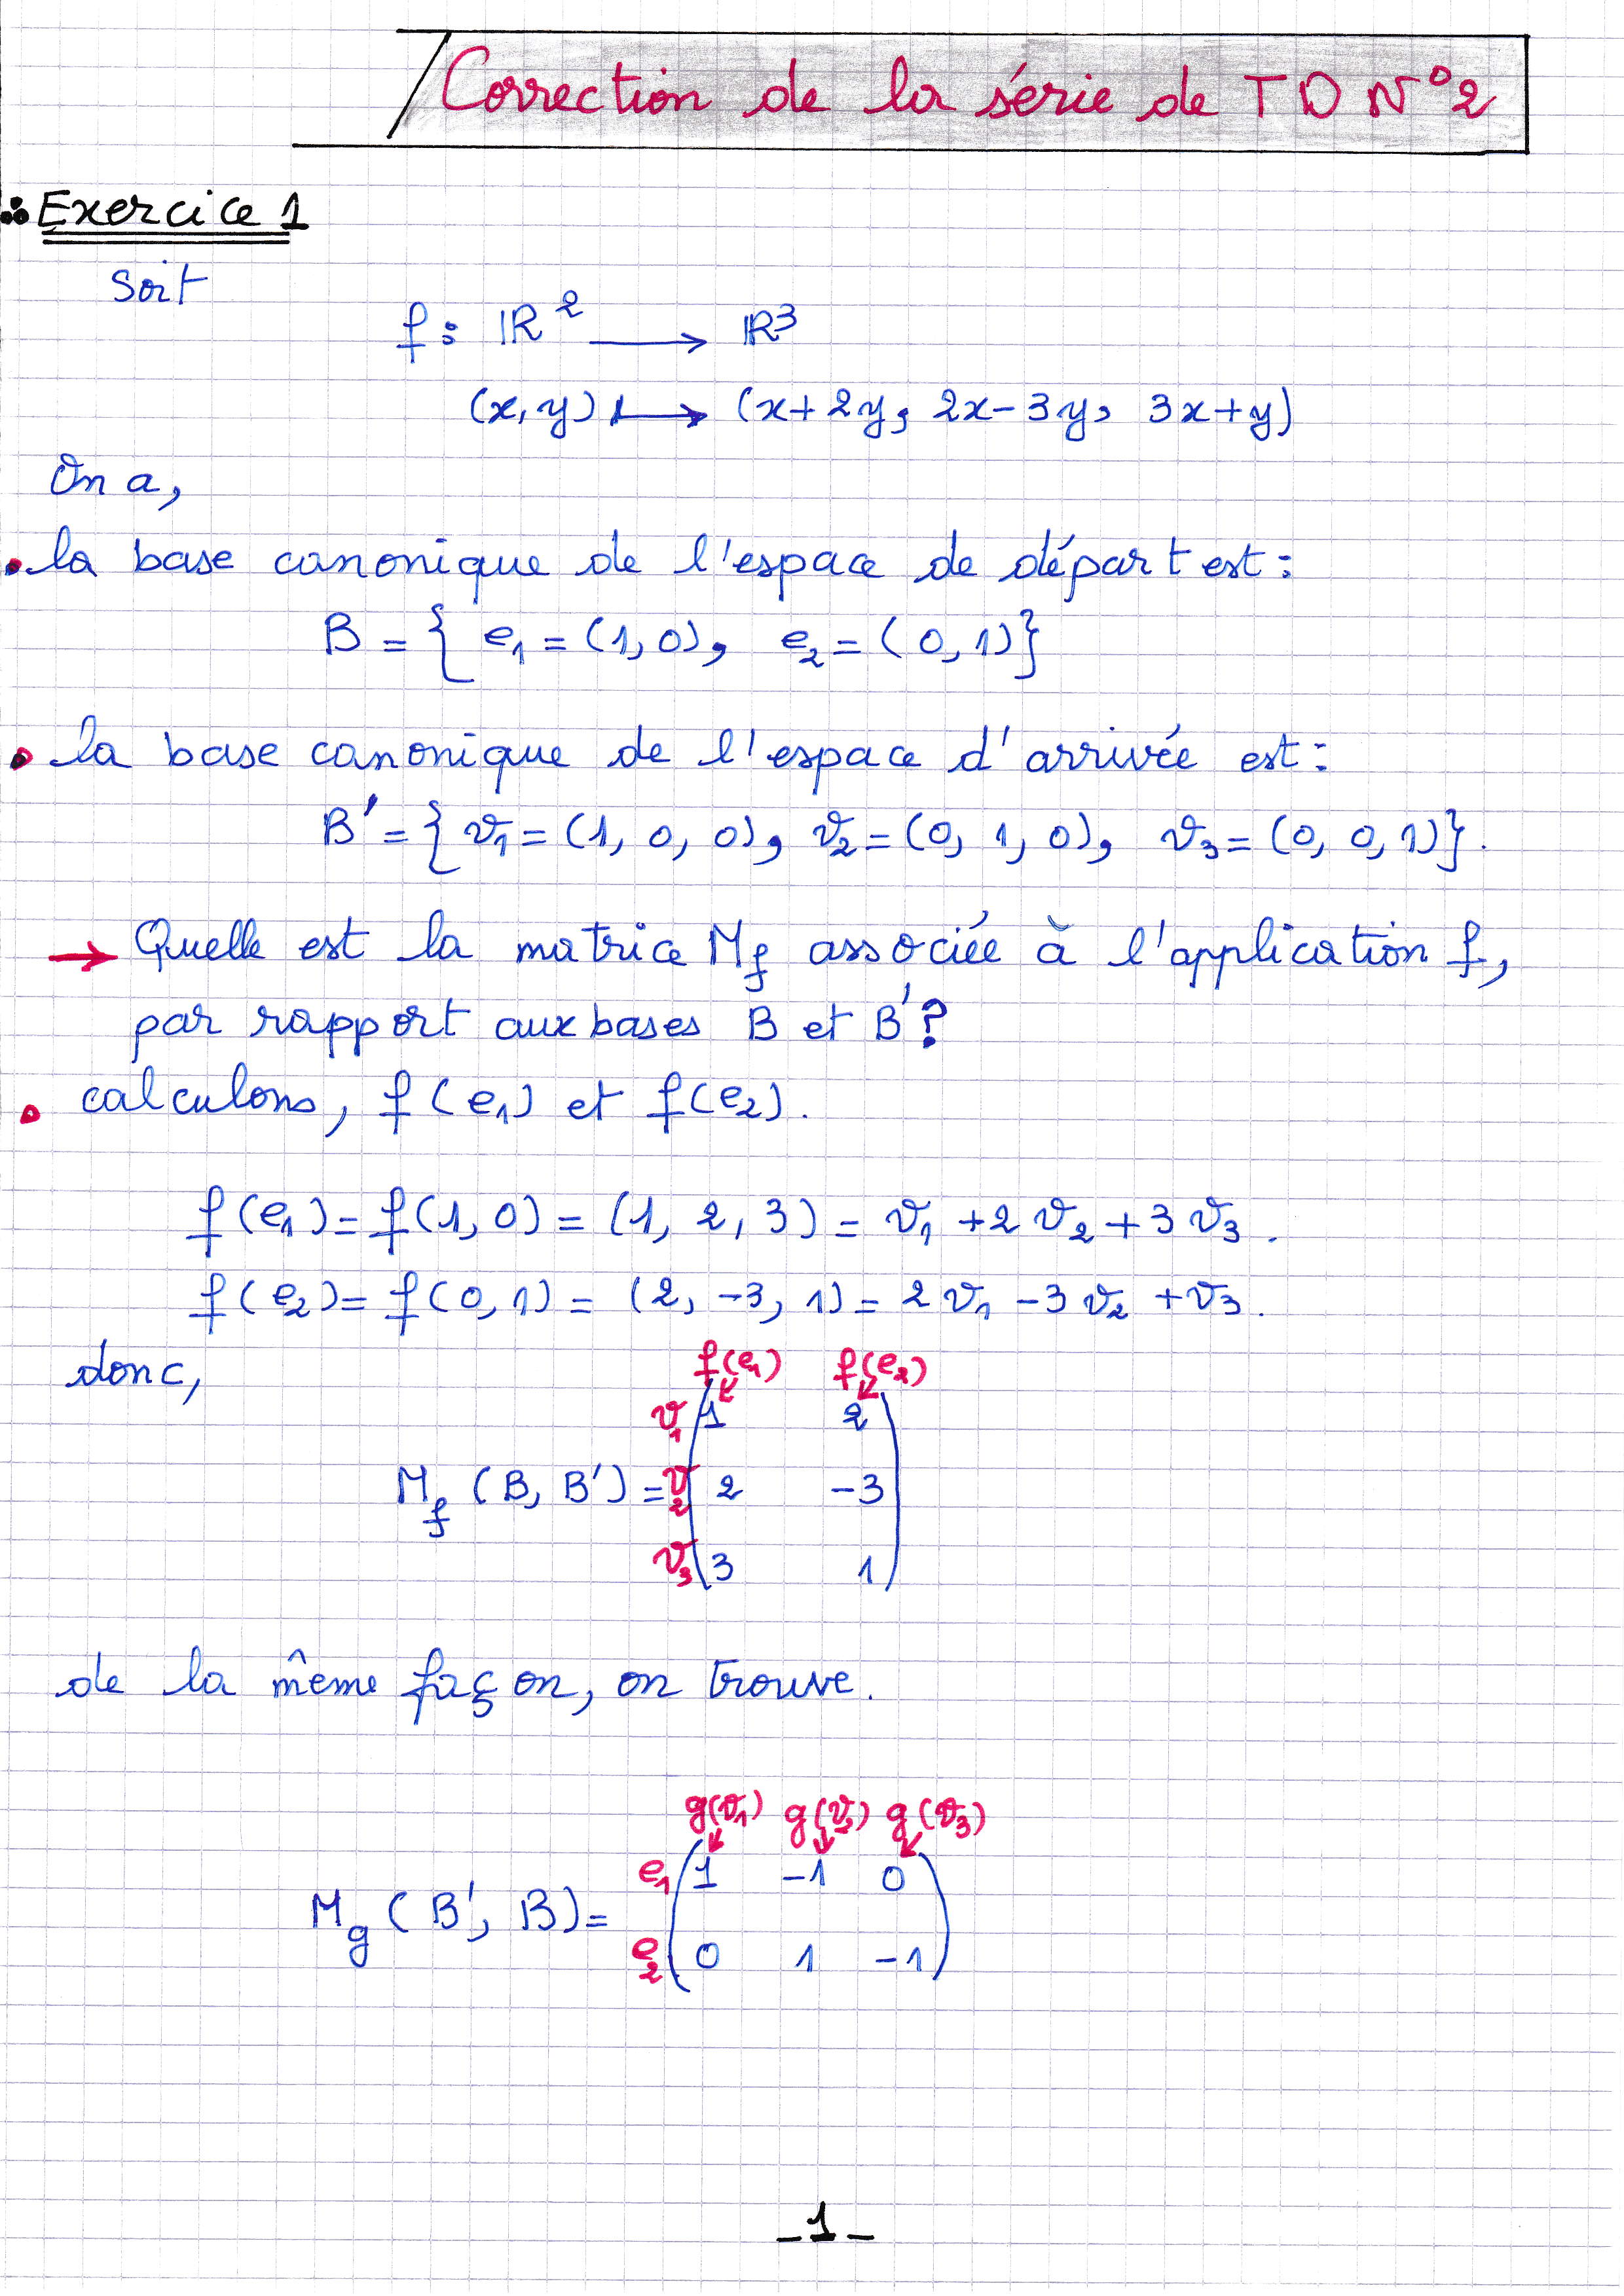 Correction de la série de TD N°2
Exercice 1
Soit
f : ℝ² → ℝ³
(x, y) ↦ (x+2y, 2x-3y, 3x+y)
On a,
• la base canonique de l'espace de départ est :
B = { e₁ = (1, 0), e₂ = (0, 1)}
• la base canonique de l'espace d'arrivée est :
B' = { v₁ = (1, 0, 0), v₂ = (0, 1, 0), v₃ = (0, 0, 1)}.
→ Quelle est la matrice M_f associée à l'application f,
par rapport aux bases B et B'?
• calculons, f(e₁) et f(e₂).
f(e₁) = f(1, 0) = (1, 2, 3) = v₁ + 2v₂ + 3v₃.
f(e₂) = f(0, 1) = (2, -3, 1) = 2v₁ - 3v₂ + v₃.
donc,
f(e₁) f(e₂)
v₁ 1 2
M_f (B, B') = v₂ 2 -3
v₃ 3 1
de la même façon, on trouve.
g(v₁) g(v₂) g(v₃)
e₁ 1 -1 0
M_g (B', B) =
e₂ 0 1 -1
-1-